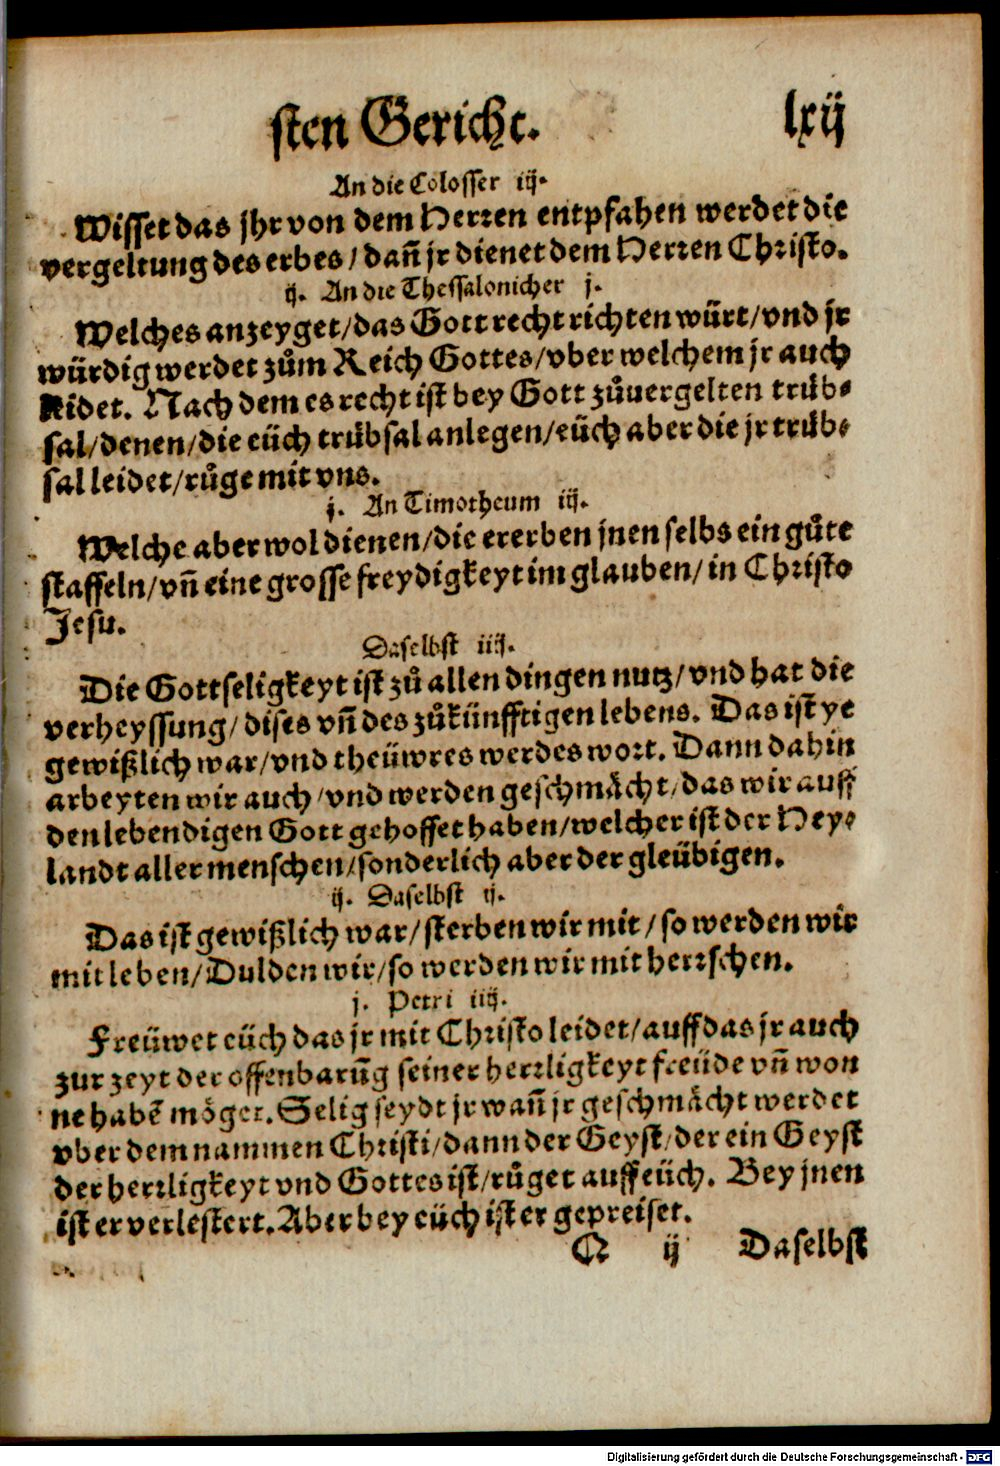 sten Gericht. lxij
An die Colosser iij.
Wisset das jhr von dem Herren entpfahen werdet die
vergeltung des erbes / dañ jr dienet dem Herren Christo.
ij. An die Thessalonicher j.
Welches anzeyget / das Gott recht richten würt / vnd jr
würdig werdet zům Reich Gottes / vber welchem jr auch
leidet. Nach dem es recht ist bey Gott zůuergelten trüb⸗
sal / denen / die eüch trübsal anlegen / eüch aber die jr trüb⸗
sal leidet / růge mit vns.
j. An Timotheum iij.
Welche aber wol dienen / die ererben jnen selbs ein gůte
staffeln / vñ eine grosse freydigkeyt im glauben / in Christo
Jesu.
Daselbst iiij.
Die Gottseligkeyt ist zů allen dingen nutz / vnd hat die
verheyssung / dises vñ des zůkünfftigen lebens. Das ist ye
gewißlich war / vnd theüwres werdes wort. Dann dahin
arbeyten wir auch / vnd werden geschmächt / das wir auff
den lebendigen Gott gehoffet haben / welcher ist der Hey⸗
landt aller menschen / sonderlich aber der gleübigen.
ij. Daselbst ij.
Das ist gewißlich war / sterben wir mit / so werden wir
mit leben / Dulden wir / so werden wir mit herrschen.
j. Petri iiij.
Freüwet eüch das jr mit Christo leidet / auff das jr auch
zur zeyt der offenbarũg seiner herrligkeyt freüde vñ won
ne habẽ möget. Selig seydt jr wañ jr geschmächt werdet
vber dem nammen Christi / dann der Geyst / der ein Geyst
der herrligkeyt vnd Gottes ist / růget auff eüch. Bey jnen
ist er verlestert. Aber bey eüch ist er gepreiset.
Q ij Daselbst
Digitalisierung gefördert durch die Deutsche Forschungsgemeinschaft - DFG